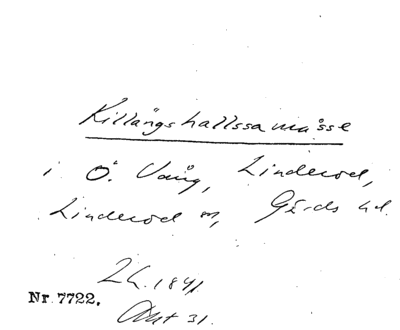 Killångshallssamåsse
i Ö. Vång, Linderöd,
Linderöd sn, Gärds hd.
Lh. 1841
Nr 7722. Akt 31.